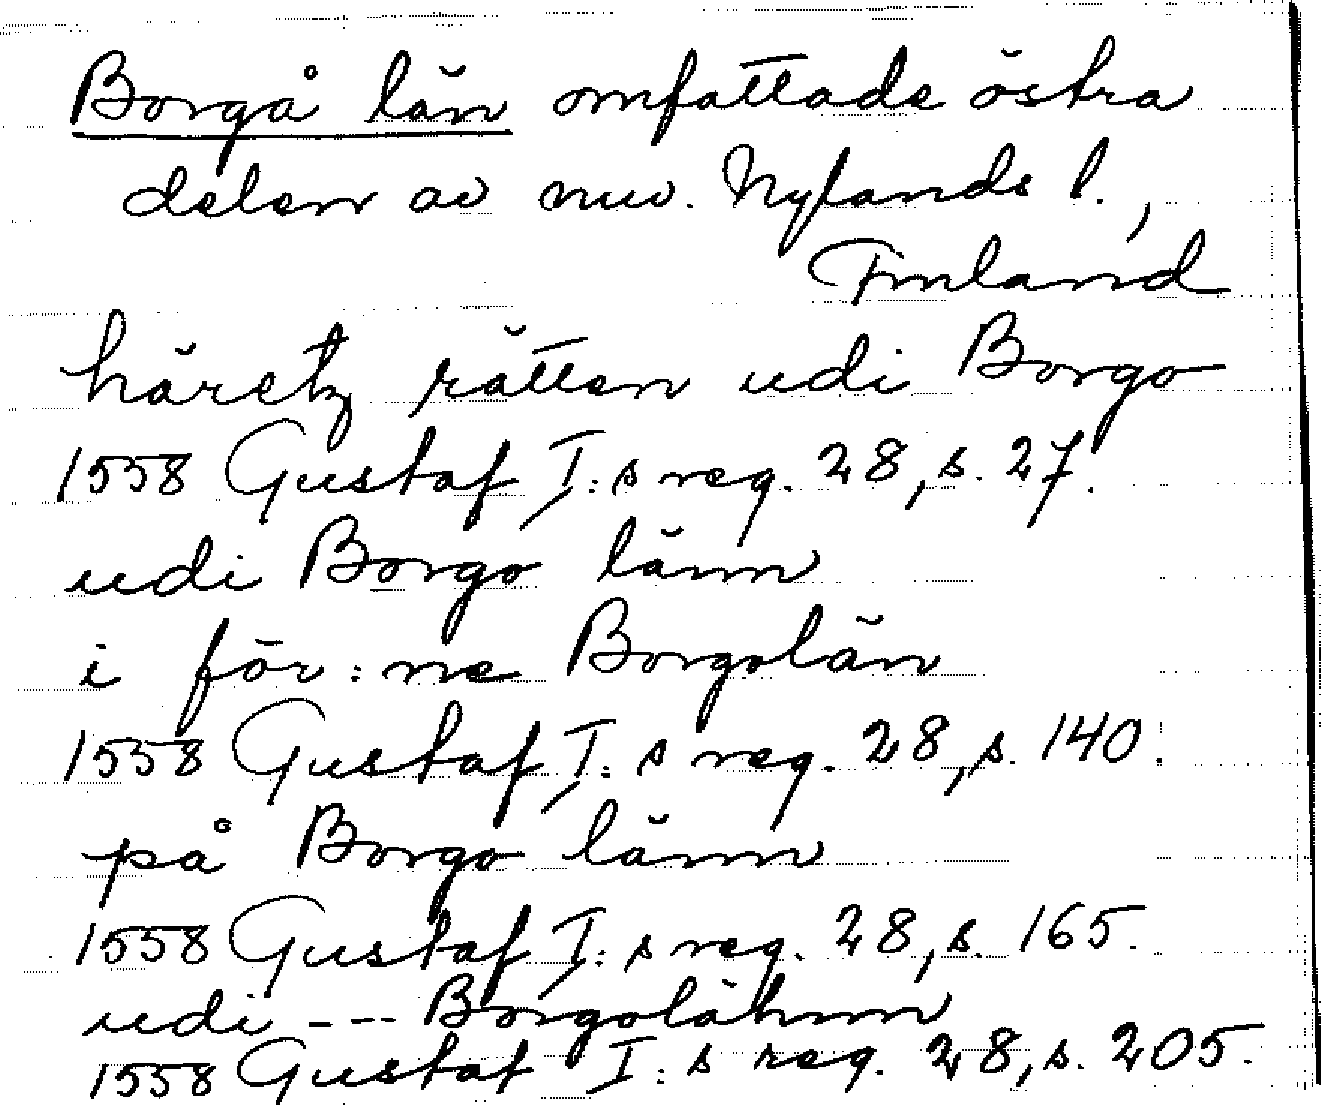 Borgå län omfattade östra
delen av nuv. Nylands l.,
Finland
häretz rätten udi Borgo
1558 Gustaf I:s reg. 28, s. 27.
udi Borgo länn
i för:ne Borgolän
1558 Gustaf I:s reg. 28, s. 140.
på Borgo länn
1558 Gustaf I:s reg. 28, s. 165.
udi --- Borgolähnn
1558 Gustaf I:s reg. 28, s. 205.